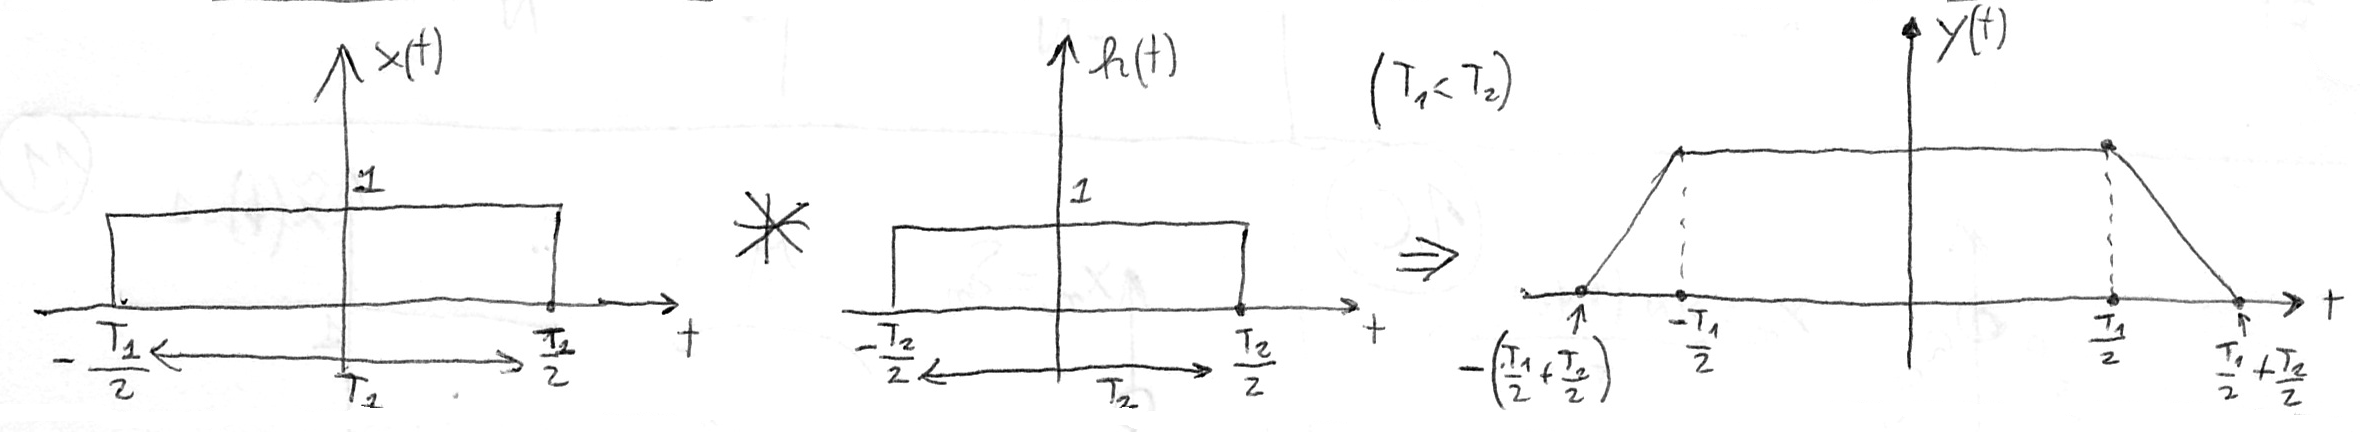 x(t)
1
-T₁/2
T₁/2
T₁
t
*
h(t)
1
-T₂/2
T₂/2
T₂
t
(T₁ < T₂)
⇒
y(t)
-(T₁/2 + T₂/2)
-T₁/2
T₁/2
T₁/2 + T₂/2
t